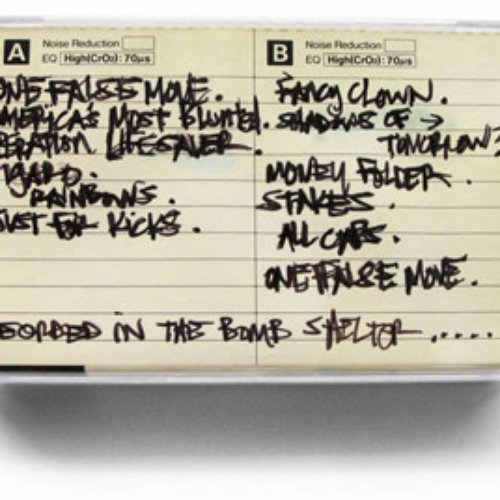 A Noise Reduction
EQ High(CrO2):70µs
ONE FALSE MOVE.
AMERICA'S MOST BLUNTED.
PERATION LIFESAVER.
IGARO.
RAINBOWS.
JUST FOR KICKS.
B Noise Reduction
EQ High(CrO2):70µs
FANCY CLOWN.
SHADOWS OF →
TOMORROW?
MONEY FOLDER.
STAKES.
ALL CAPS.
ONE FALSE MOVE.
ECORDED IN THE BOMB SHELTOR .....